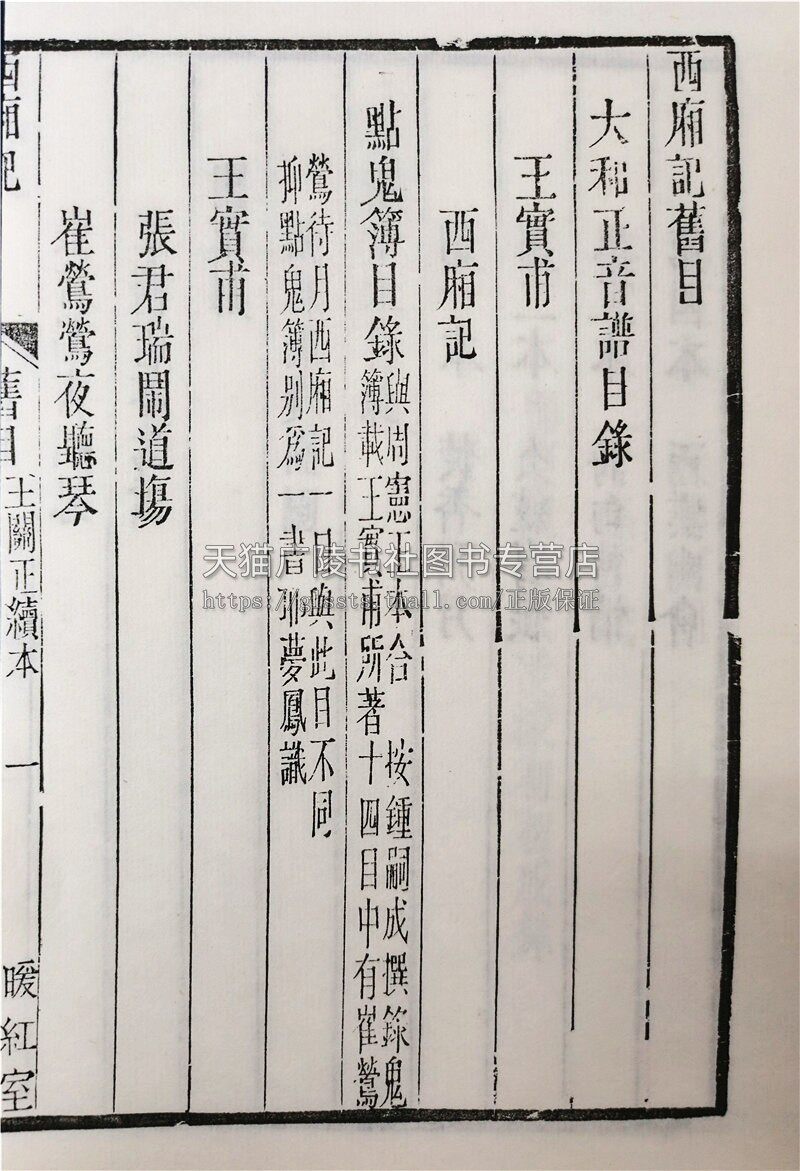 西廂記舊目
大和正音譜目錄
王實甫
西廂記
點鬼簿目錄 與周憲王本合 按鍾嗣成撰錄鬼
簿載王實甫所著十四目中有崔鶯
鶯待月西廂記一目與此目不同
抑點鬼簿别爲一書耶夢鳳識
王實甫
張君瑞鬧道塲
崔鶯鶯夜聽琴
西廂記 舊目 王關正續本 一 暖紅室
天猫广陵书社图书专营店
https://glssts.tmall.com/正版保证